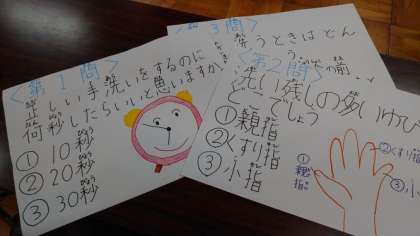 <第1問>
正しい手洗いをするのに
何秒したらいいと思いますか。
① 10秒
② 20秒
③ 30秒
3問>
うときはどん
の前
<第2問>
洗い残しの多いゆび
どこでしょう
①親指
②くすり指
③小指
①親指
②くすり指
③小